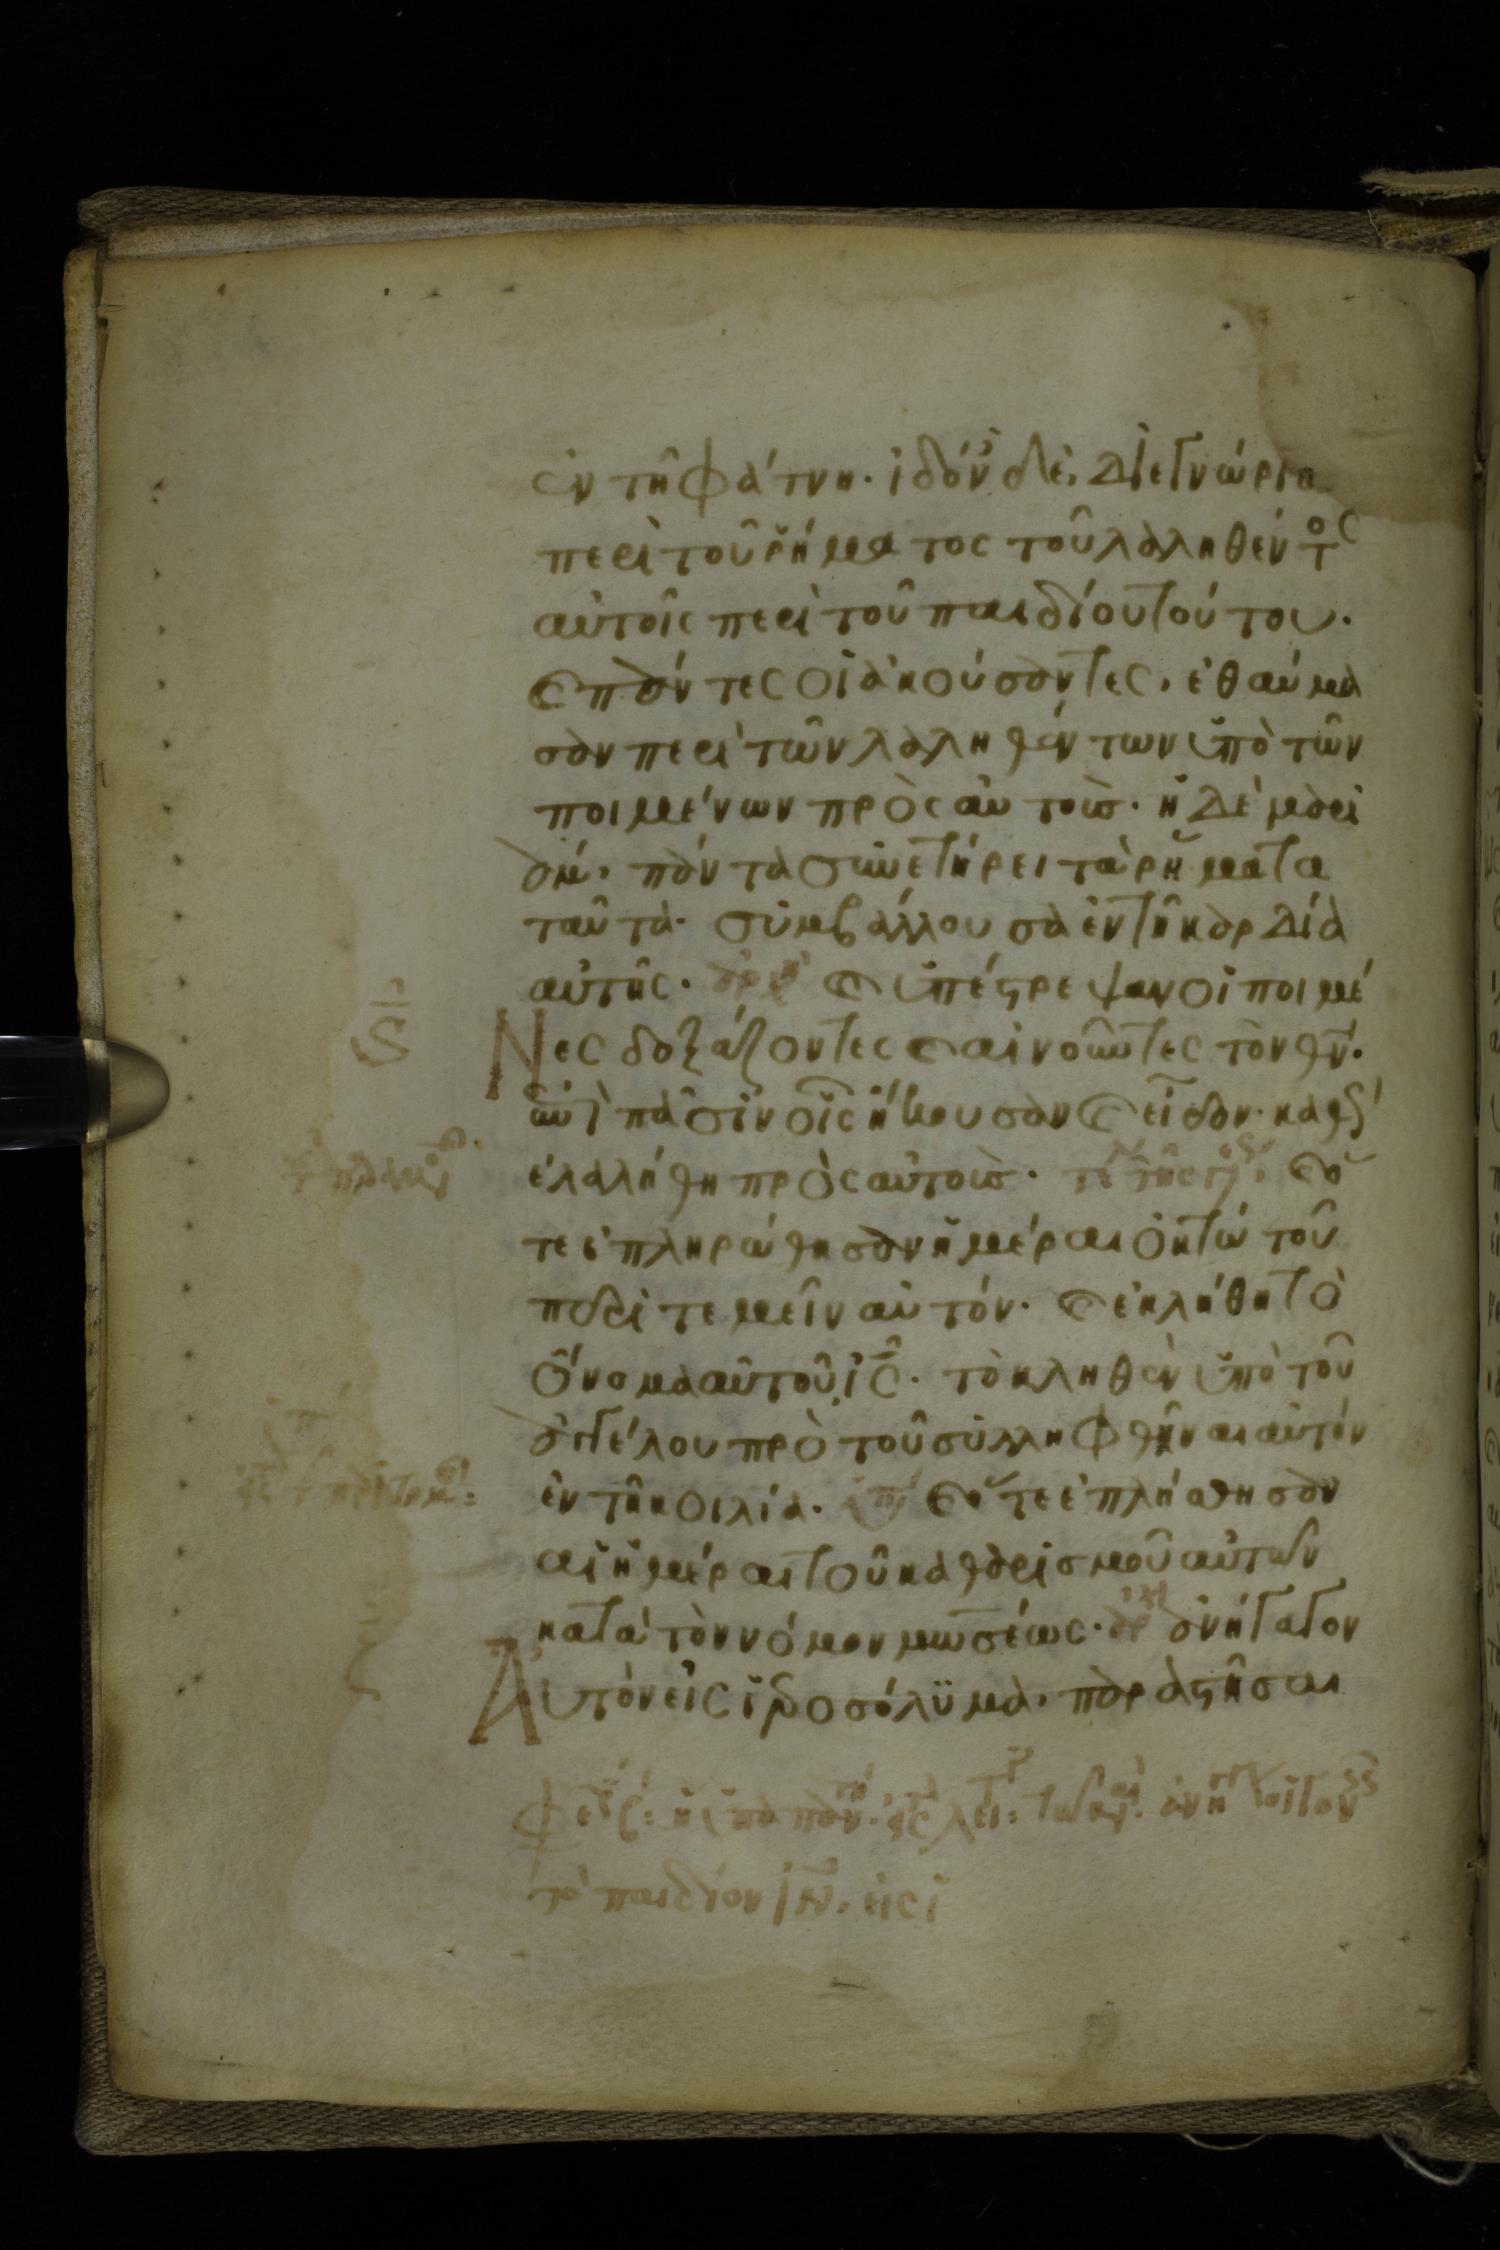 ἐν τῆ φάτνη. ἰδόν̓ δὲ, διεγνώρισ
περὶ τοῦ ῥήματος τοῦ λαληθέντος
αὐτοῖς περὶ τοῦ παιδίου τούτου.
Ϗ πάντες οἱ ἀκούσαντες, ἐθαύμα
σαν περὶ τῶν λαληθέντων ὑπὸ τῶν
ποιμένων πρὸς αὐτούς. ἡ δὲ μαρι
ὰμ, πάντα συνετήρει τὰ ῥήματα
ταῦτα. συμβάλλουσα ἐν τῆ καρδία
αὐτῆς. ϗ ὑπέστρεψαν οἱ ποιμέ
Νες δοξάζοντες ϗ αἰνοῦντες τὸν θ̅ν̅.
ἐπὶ πᾶσιν οἷς ἤκουσαν ϗ εἶδον. καθὼς
ἐλαλήθη πρὸς αὐτούς. ϗ ὅ
τε ἐπλήρώθησαν ἡμέραι ὀκτώ τοῦ
περιτεμεῖν αὐτόν. ϗ ἐκλήθη τὸ
ὄνομα αὐτοῦ ι̅ς̅. τὸ κληθὲν ὑπὸ τοῦ
ἀγγέλου πρὸ τοῦ συλληφθῆναι αὐτόν
ἐν τῆ κοιλία. ϗ ὅτε ἐπλήσθησαν
αἱ ἡμέραι τοῦ καθαρισμοῦ αὐτῶν
κατὰ τὸν νόμον μωσέως. ἀρχ ἀνήγαγον
Αὐτὸν εἰς ἱεροσόλϋμα. παραστῆσαι
τὸ παιδίον ι̅ν̅. εἰς ἱ